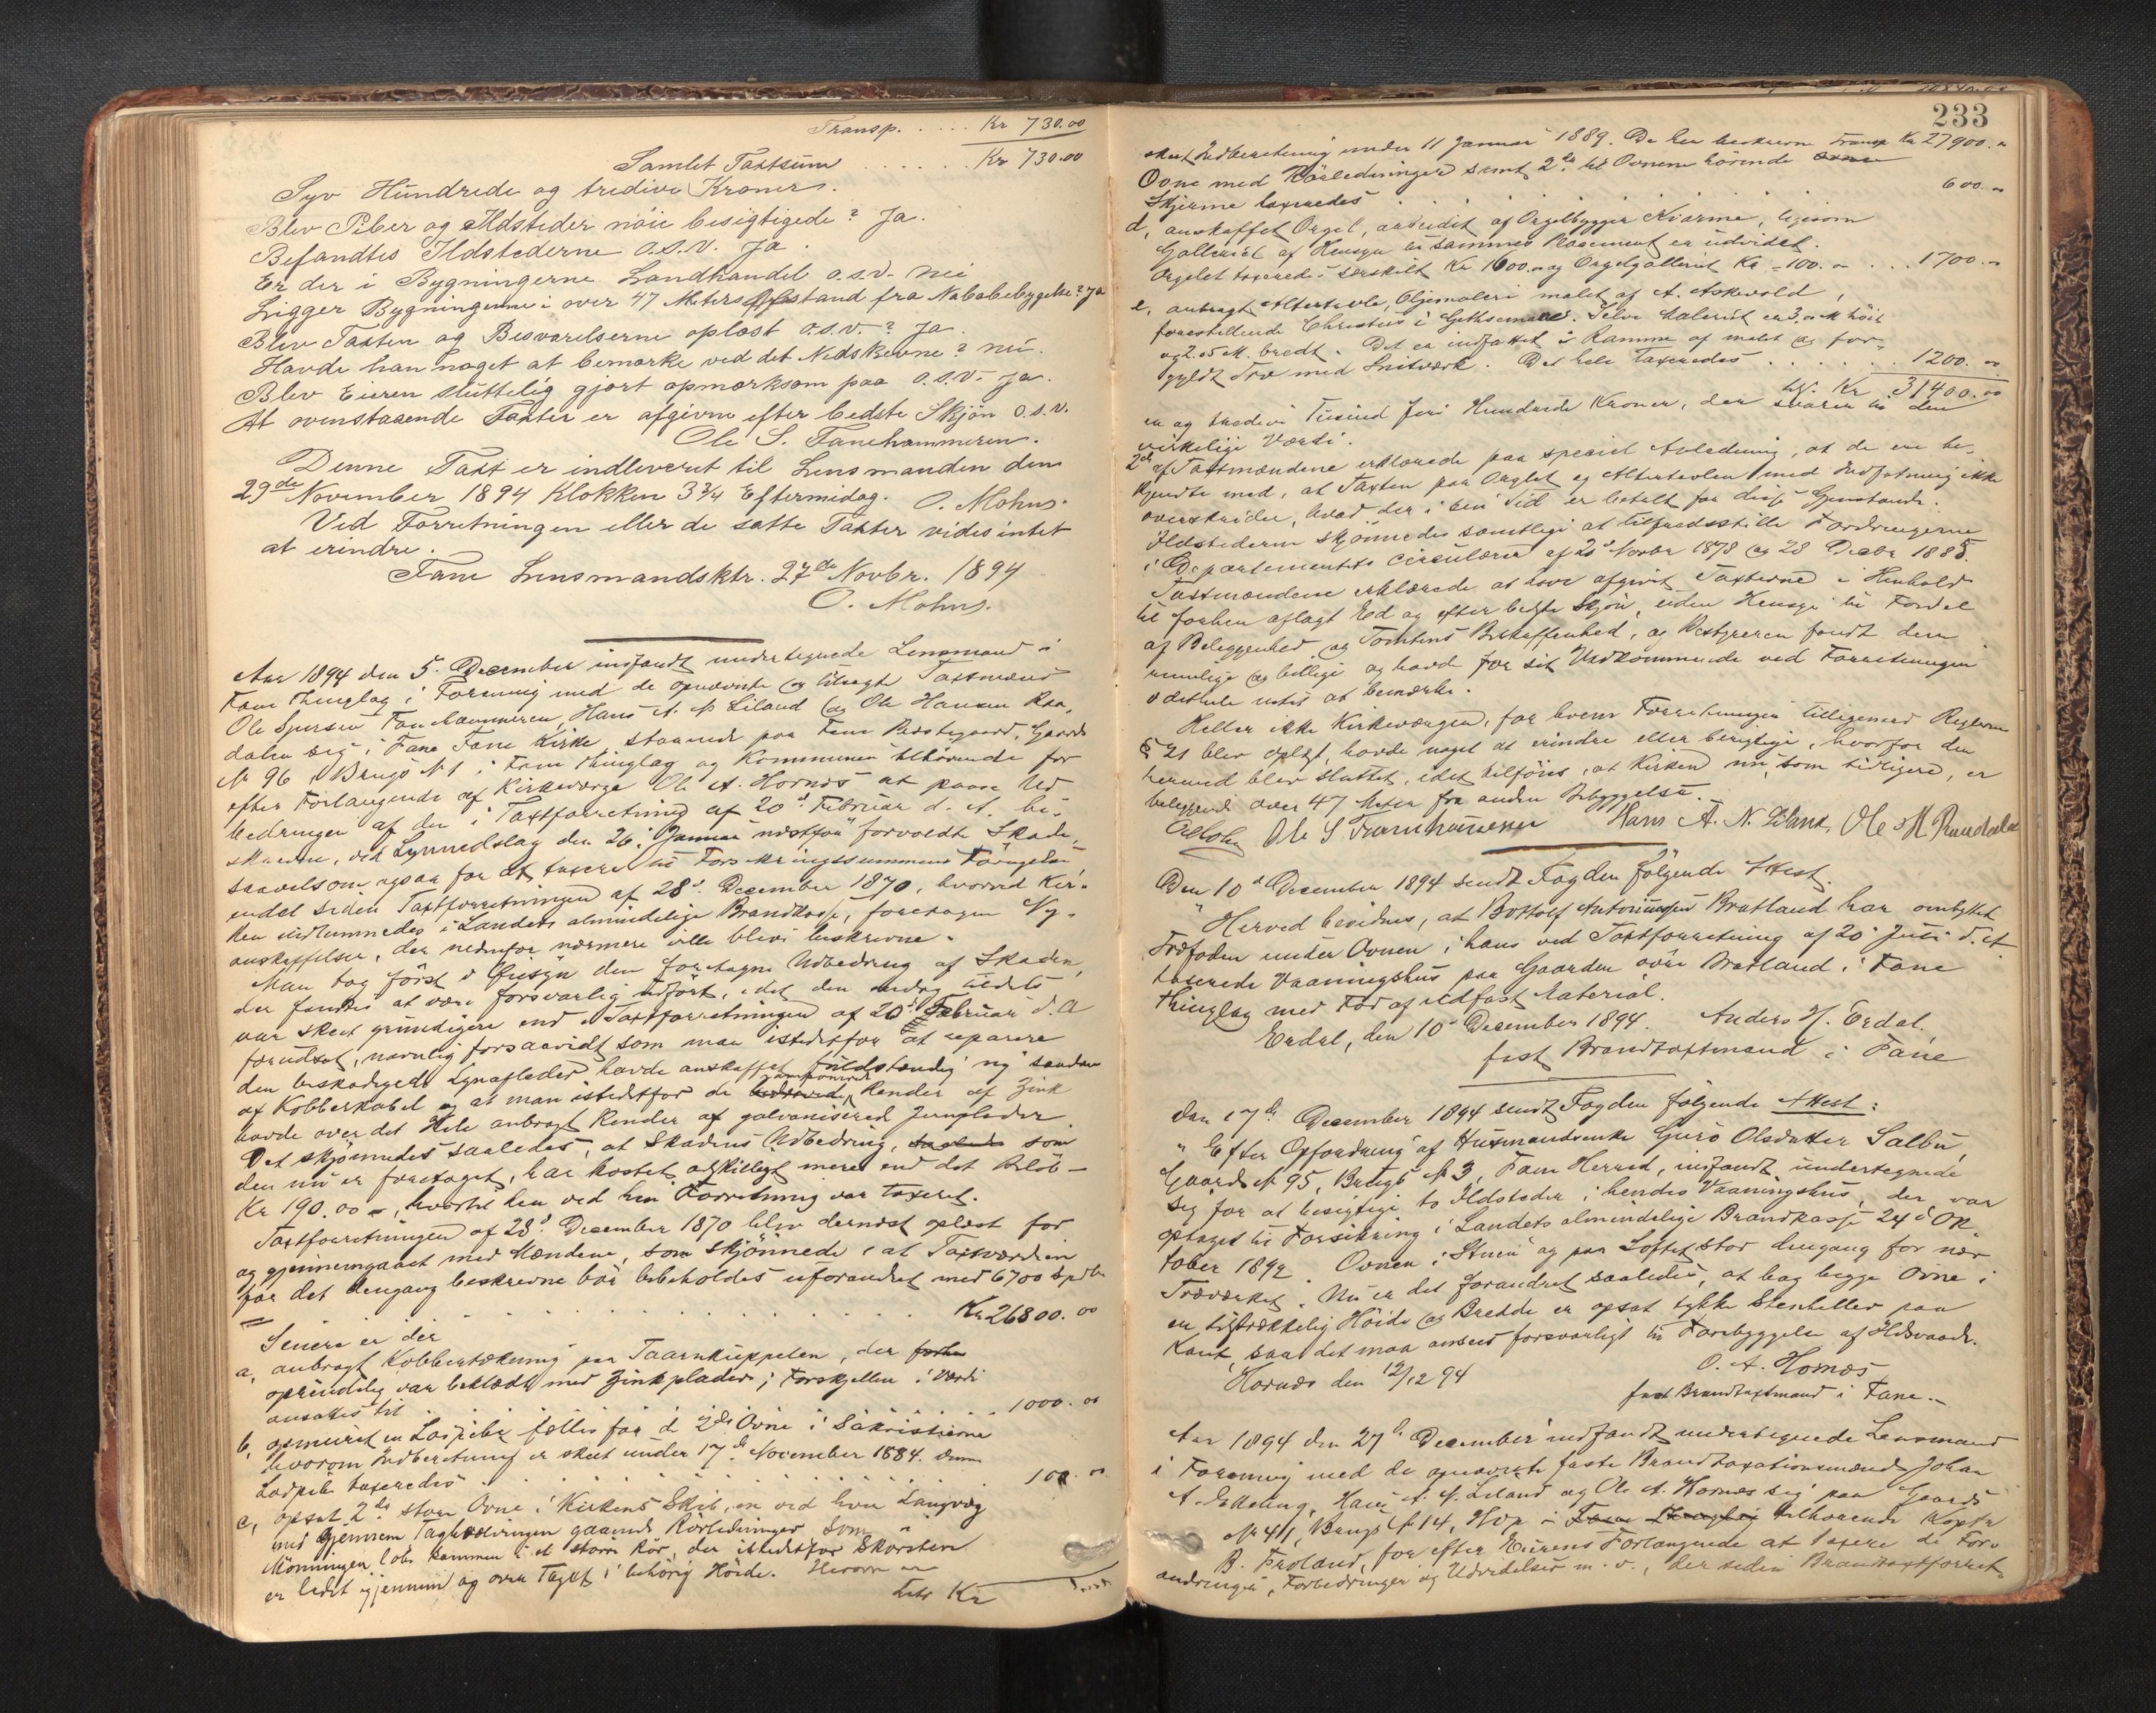 Transp. . . . . Kr 730.00
Samlet Taxtsum . . . . . . Kr 730.00
Syv Hundrede og tredive Kroner.
Blev Piber og Ildsteder nöie besigtigede? Ja.
Befandtes Ildstederne o.s.v. Ja.
Er der i Bygningerne Landhandel o.s.v. Nei
Ligger Bygningerne i over 47 Meters Afstand fra Nabobebyggelse? Ja
Blev Taxten og Besvarelserne oplæst o.s.v.? Ja.
Havde han noget at bemærke ved det Nedskrevne? Nei.
Blev Eieren sluttelig gjort opmærksom paa o.s.v. Ja.
At ovenstaaende Taxter er afgivne efter bedste Skjön o.s.v.
Ole S. Fanehammeren.
Denne Taxt er indleveret til Lensmanden den
29de November 1894 Klokken 3 3/4 Eftermidag. O. Mohns.
Ved Forretningen eller de satte Taxter vides intet
at erindre.
Fane Lensmandsktr. 27de Novbr. 1894
O. Mohns.
Aar 1894 den 5. December indfandt undertegnede Lensmand i
Fane Thinglag i Forening med de opnævnte og tilsagte Taxtmænd
Ole Sjursen Fanehammeren, Hans A. N. Liland og Ole Hansen Raa-
dalen sig i Fane Kirke staaende paa Fane Præstegaard, Gaards
No 96, Brugs No 1 i Fane Thinglag og Kommunen tilhörende for
efter Forlangende af Kirkeværge Ole A. Hornæs at paase Ud-
bedringen af den i Taxtforretning af 20d Februar d. A. be-
skrevne, ved Lynnedslag den 26. Januar næstfør forvoldte Skade,
saavelsom ogsaa for at taxere til Forsikringssummens Forøgelse
endel siden Taxtforretningen af 28d December 1870, hvorved Kir-
ken indlemmedes i Landets almindelige Brandkasse, foretagne Ny-
anskaffelser, der nedenfor nærmere ville blive beskrevne.
Man tog först i Øiesyn den foretagne Udbedring af Skaden,
der fandtes at være forsvarlig udfört, idet den endog tildels
var skeet grundigere end i Taxtforretningen af 20d Februar d. A
forudsat, navnlig forsaavidt som man istedetfor at reparere
den beskadigede Lynafleder havde anskaffet fuldstændig ny saadan
af Kobberkabel og at man istedetfor de Render af Zink
havde over det Hele anbragt Render af galvaniseret Jernplader
Det skjönnedes saaledes, at Skadens Udbedring, som
den nu er foretaget, har kostet adskilligt mere end det Belöb -
Kr 190.00 -, hvortil den ved hin Forretning var taxeret.
Taxtforretningen af 28d December 1870 blev dernæst oplæst for
og gjennemgaaet med Mændene, som skjönnede, at Taxtværdien
for det dengang beskrevne bör bibeholdes uforandret med 6700 Spdlr
= . . . . . . Kr 26800.00
Senere er der
a, anbragt Kobbertækning paa Taarnkuppelen, der
oprindelig var beklædt med Zinkplader; Forskjellen i Værdi
ansattes til . . . . . . 1000.00
b, opmuret en Lodpibe fælles for de 2de Ovne i Sakristierne
hvorom Indberetning er skeet under 17de November 1884. Denne
Lodpibe taxeredes . . . . . . 100.00
c, opsat 2de store Ovne i Kirkens Skib, en ved hver Langvæg
med gjennem Taghvælvingen gaaende Rörledninger, som
Mönningen löbe sammen i et större Rör, der istedetfor Skorsten
er ledet igjennem og over Taget i behörig Höide. Herom er
Lat. Kr
233
skeet Indberetning under 11 Januar 1889. De her beskrevne Transp Kr 27900.00
Ovne med Rörledninger samt 2de til Ovnene hörende
Skjerme taxeredes . . . . . 600.00
d, anskaffet Orgel, arbeidet af Orgelbygger Kvarme, ligesom
Galleriet af Hensyn til sammes Placement er udvidet.
Orgelet taxeredes særskilt Kr 1600.00 og Orgelgalleriet Kr 100.00 . . . 1700.00
e, anbragt Altertavle, Oljemaleri malet af A. Askevold,
forestillende Christus i Gethsemane. Selve Maleriet er 3.00 M höit
og 2.05 M. bredt. Det er indfattet i Ramme af malet og for-
gyldt Træ med Snitværk. Det hele taxeredes . . . . . 1200.00
tils. Kr 31400.00
en og tredive Tusind fire Hundrede Kroner, der svarer til den
virkelige Værdi.
2de af Taxtmændene erklærede paa speciel Anledning, at de ere be-
kjendte med, at Taxten paa Orgelet og Altertavlen med Indfatning ikke
overskrider, hvad der i sin Tid er betalt for disse Gjenstande.
Ildstederne skjönnedes samtlige at tilfredsstille Fordringerne
i Departementets Circulærer af 20d Novbr 1878 og 28 Decbr 1885.
Taxtmændene erklærede at have afgivet Taxterne i Henhold
til forhen aflagt Ed og efter bedste Skjön, uden Hensyn til Fordel
af Beliggenhed og Tomtens Beskaffenhed, og Bestyreren fandt dem
rimelige og billige og havde for sit Vedkommende ved Forretningen
videre intet at bemærke.
Heller ikke Kirkeværgen, for hvem Forretningen tilligemed Reglerne
§ 21 blev oplæst, havde noget at erindre eller berigtige, hvorfor den
hermed blev sluttet, idet tilföies, at Kirken nu, som tidligere, er
beliggende over 47 Meter fra anden Bebyggelse.
Ole S Fanehammeren Hans A. N. Liland, Ole H Raadalen
Den 10d December 1894 sendt Fogden følgende Attest.
" Herved bevidnes, at Bottolf Antoniussen Bratland har ombyttet
Træfoden under Ovnen i hans ved Taxtforretning af 20 Juli d. A
taxerede Vaaningshus paa Gaarden övre Bratland i Fane
Thinglag med Fod af ildfast Material.
Erdal, den 10d December 1894. Anders H. Erdal.
fast Brandtaxtmand i Fane
Den 17de December 1894 sendt Fogden følgende Attest:
" Efter Opfordring af Husmandsenke Guro Olsdatter Salbu,
Gaards No 95, Brugs No 3, Fane Herred, indfandt undertegnede
sig for at besigtige to Ildsteder i hendes Vaaningshus, der var
optaget til Forsikring i Landets almindelige Brandkasse 24d Ok-
tober 1892. Ovnen i Stuen og paa Loftet stod dengang for nær
Træværket. Nu er det forandret saaledes, at bag begge Ovne i
en tilstrækkelig Höide og Bredde er opsat tykke Stenheller paa
Kant, saa det maa ansees forsvarligt til Forebyggelse af Ildsvaade.
Hornæs den 12/12 94 O. A. Hornæs
fast Brandtaxtmand i Fane.
Aar 1894 den 27de December indfandt undertegnede Lensmand
i Forening med de opnævnte faste Brandtaxationsmænd Johan
A. , Hans A. N. Liland og Ole A. Hornæs sig paa Gaards
No 41, Brugs No 14, Hop i Fane Thinglag tilhørende
B. Frøland, for efter Eierens Forlangende at taxere de For-
andringer, Forbedringer og Udvidelser m. v., der siden Brandtaxtforret-